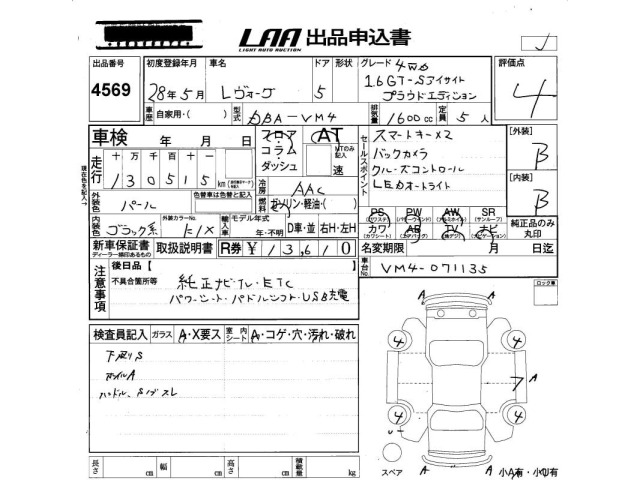 LAA 出品申込書
LIGHT AUTO AUCTION
出品番号 4569
初度登録年月 28年5月
車名 レヴォーグ
ドア 5
形状
グレード 4WD
1.6GT-Sアイサイト
プラウドエディション
評価点 4
車歴 自家用・( )
型式 DBA-VM4
排気量 1600cc
定員 5人
車検 年 月 日
フロア
コラム
ダッシュ
AT
MTのみ記入
速
セールスポイント
スマートキー×2
バックカメラ
クルーズコントロール
LEDオートライト
[外装] B
[内装] B
走行 十 万 千 百 十 一
130515 km
冷房 AAC
燃料 ガソリン・軽油・( )
外装色 パール
色替車は色替と記入
内装色 ブラック系
外装カラーNo. K1X
輸入車 モデル年式
年・不明
D車・並 右H・左H
PS PW AW SR
(パワステ) (パワーウインド) (アルミホイル) (サンルーフ)
カワ AB TV ナビ
(カワシート) (エアバッグ) (ナビゲーション)
純正品のみ
丸印
新車保証書
ディーラー捺印あるもの
取扱説明書
R券 ¥13,610
名変期限 月 日迄
車台No. VM4-071135
注意事項
後日品【 】
不具合箇所等
純正ナビ・TV・ETC
パワーシート・パドルシフト・USB充電
ロック車
検査員記入 ガラス A・X要ス
室内シート A・コゲ・穴・汚れ・破れ
下廻りS
ホイルA
ハンドル、ダッシュスレ
A A
4 4
A 7 A
4 4
A A
スペア
小A有・小U有
長さ cm 幅 cm 高さ cm 積載量 kg